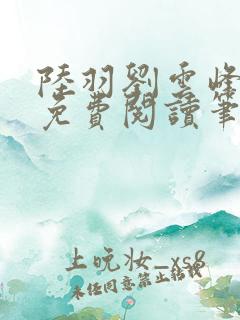 陸羽劉雲峰
免費閱讀筆
上晚妆_xs8
未任同意禁止转载